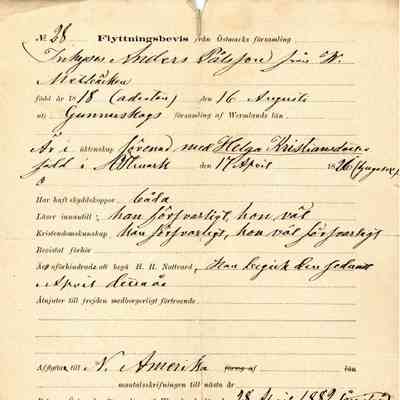 № 28 Flyttningsbevis från Östmarks församling
Inhyses Anders Pålsson från W.
född år 1818 (aderton) den 16 Augusti
uti Gunnarskogs församling af Wermlands län
Är i äktenskap förenad med Helga Kristiansdotter
född i Östmark den 17 April 1826
Har haft skyddskoppor båda
Läser innantill han försvarligt, hon väl
Kristendomskunskap han försvarligt, hon väl försvarligt
Bevistat förhör
Äger oförhindradt att begå H. H. Nattvard, Han begick den sednast
April detta år
Åtnjuter till frejden medborgerligt förtroende
Afflyttar till N. Amerika län
mantalsskrifningen till nästa år
28 April 1882